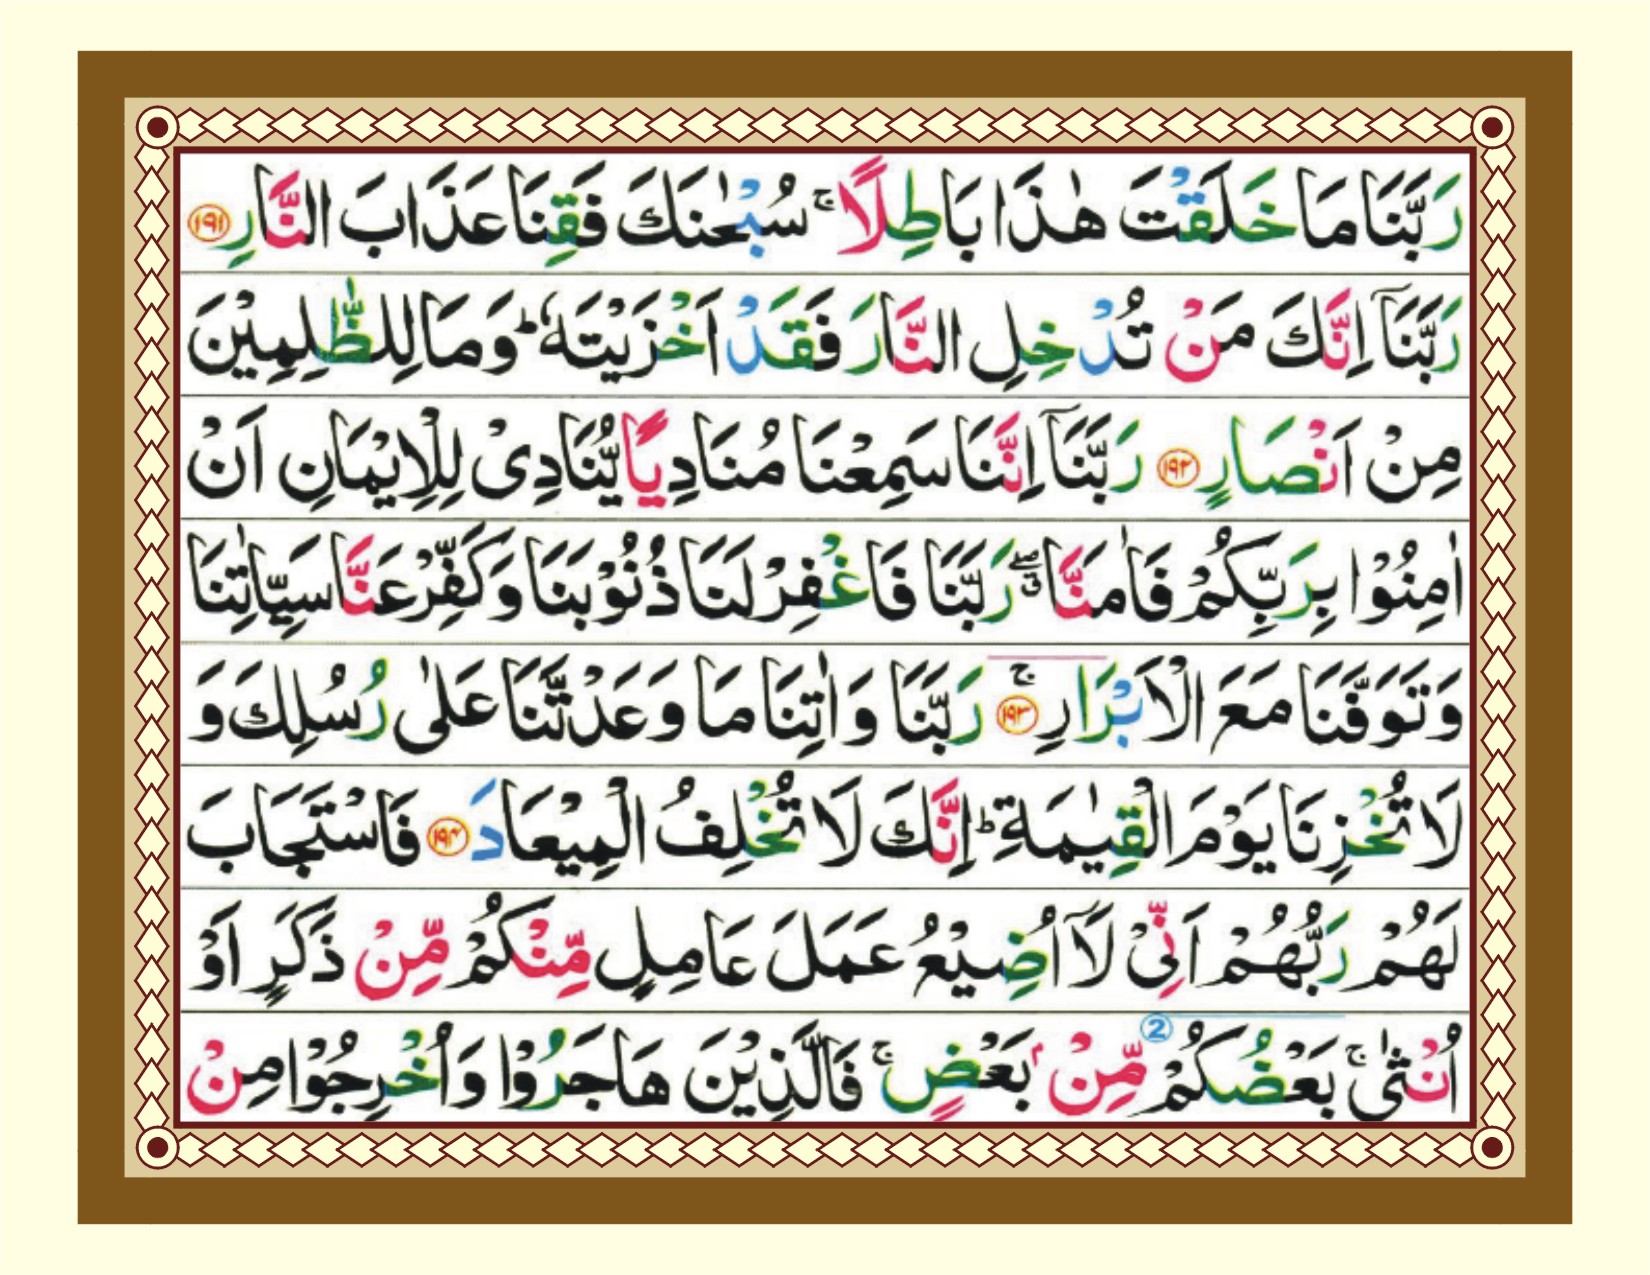 رَبَّنَا مَا خَلَقْتَ هٰذَا بَاطِلًا ۚ سُبْحٰنَكَ فَقِنَا عَذَابَ النَّارِ ﴿۱۹۱﴾
رَبَّنَاۤ اِنَّكَ مَنْ تُدْخِلِ النَّارَ فَقَدْ اَخْزَيْتَهٗ ؕ وَمَا لِلظّٰلِمِيْنَ
مِنْ اَنْصَارٍ ﴿۱۹۲﴾ رَبَّنَاۤ اِنَّنَا سَمِعْنَا مُنَادِيًا يُّنَادِىْ لِلْاِيْمَانِ اَنْ
اٰمِنُوْا بِرَبِّكُمْ فَاٰمَنَّا ۖۗ رَبَّنَا فَاغْفِرْ لَنَا ذُنُوْبَنَا وَكَفِّرْ عَنَّا سَيِّاٰتِنَا
وَتَوَفَّنَا مَعَ الْاَبْرَارِ ۚ ﴿۱۹۳﴾ رَبَّنَا وَاٰتِنَا مَا وَعَدْتَّنَا عَلٰى رُسُلِكَ وَ
لَا تُخْزِنَا يَوْمَ الْقِيٰمَةِ ؕ اِنَّكَ لَا تُخْلِفُ الْمِيْعَادَ ﴿۱۹۴﴾ فَاسْتَجَابَ
لَهُمْ رَبُّهُمْ اَنِّىْ لَاۤ اُضِيْعُ عَمَلَ عَامِلٍ مِّنْكُمْ مِّنْ ذَكَرٍ اَوْ
اُنْثٰى ۚ بَعْضُكُمْ 2 مِّنْۢ بَعْضٍ ۚ فَالَّذِيْنَ هَاجَرُوْا وَاُخْرِجُوْا مِنْ